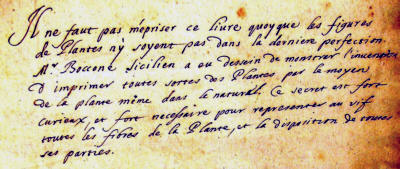 Il ne faut pas mépriser ce livre quoyque les figures
de Plantes n'y soyent pas dans la derniere perfection.
Mr. Boccone Sicilien a eu dessein de monstrer l'invention
d'imprimer toutes sortes des Plantes par le moyen
de la plante même dans le natural. Ce secret est fort
curieux, et fort necessaire pour representer au vif
toutes les fibres de la Plante, et la disposition de toutes
ses parties.